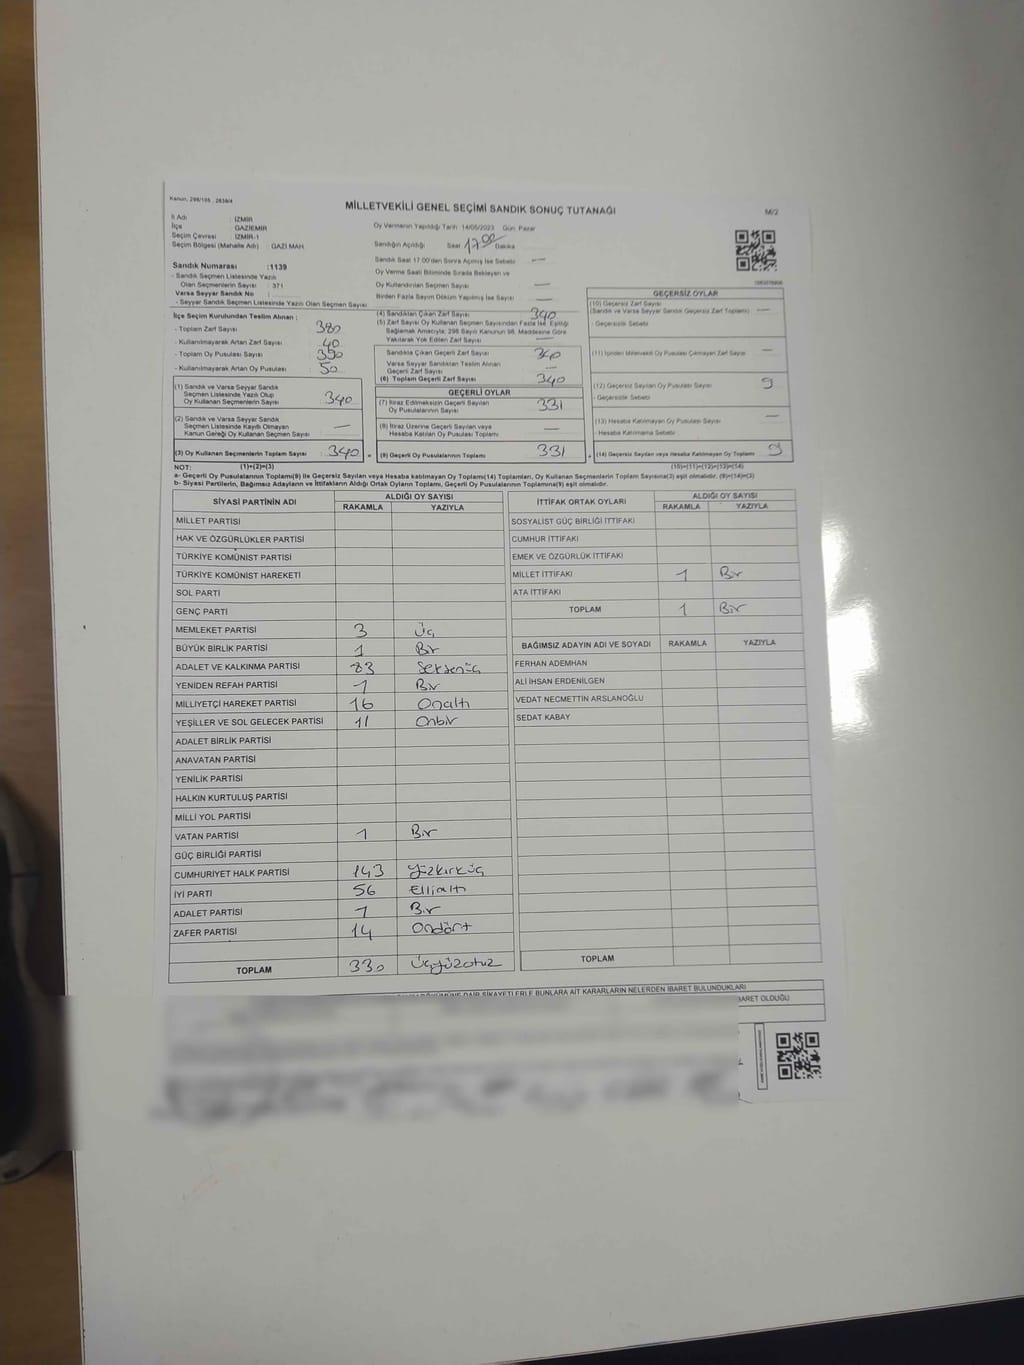 Kanun, 298/105 , 2839/4
MİLLETVEKİLİ GENEL SEÇİMİ SANDIK SONUÇ TUTANAĞI
M/2
İl Adı : İZMİR
İlçe : GAZİEMİR
Seçim Çevresi : İZMİR-1
Seçim Bölgesi (Mahalle Adı) : GAZİ MAH.
Oy Vermenin Yapıldığı Tarih 14/05/2023 Gün: Pazar
Sandığın Açıldığı Saat 17 00 Dakika
Sandık Saat 17.00'den Sonra Açılmış İse Sebebi —
Oy Verme Saati Bitiminde Sırada Bekleyen ve
Oy Kullandırılan Seçmen Sayısı —
Birden Fazla Sayım Döküm Yapılmış İse Sayısı —
Sandık Numarası :1139
- Sandık Seçmen Listesinde Yazılı
Olan Seçmenlerin Sayısı : 371
Varsa Seyyar Sandık No :
- Seyyar Sandık Seçmen Listesinde Yazılı Olan Seçmen Sayısı
İlçe Seçim Kurulundan Teslim Alınan :
- Toplam Zarf Sayısı 380
- Kullanılmayarak Artan Zarf Sayısı : 40
- Toplam Oy Pusulası Sayısı : 390
- Kullanılmayarak Artan Oy Pusulası : 50
(1) Sandık ve Varsa Seyyar Sandık
Seçmen Listesinde Yazılı Olup
Oy Kullanan Seçmenlerin Sayısı 340
(2) Sandık ve Varsa Seyyar Sandık
Seçmen Listesinde Kayıtlı Olmayan
Kanun Gereği Oy Kullanan Seçmen Sayısı —
(3) Oy Kullanan Seçmenlerin Toplam Sayısı : 340
(4) Sandıktan Çıkan Zarf Sayısı 340
(5) Zarf Sayısı Oy Kullanan Seçmen Sayısından Fazla İse, Eşitliği
Sağlamak Amacıyla; 298 Sayılı Kanunun 98. Maddesine Göre
Yakılarak Yok Edilen Zarf Sayısı —
Sandıkta Çıkan Geçerli Zarf Sayısı 340
Varsa Seyyar Sandıktan Teslim Alınan
Geçerli Zarf Sayısı —
(6) Toplam Geçerli Zarf Sayısı 340
GEÇERLİ OYLAR
(7) İtiraz Edilmeksizin Geçerli Sayılan
Oy Pusulalarının Sayısı 331
(8) İtiraz Üzerine Geçerli Sayılan veya
Hesaba Katılan Oy Pusulası Toplamı —
(9) Geçerli Oy Pusulalarının Toplamı 331
GEÇERSİZ OYLAR
(10) Geçersiz Zarf Sayısı
(Sandık ve Varsa Seyyar Sandık Geçersiz Zarf Toplamı) —
- Geçersizlik Sebebi
(11) İçinden Milletvekili Oy Pusulası Çıkmayan Zarf Sayısı —
(12) Geçersiz Sayılan Oy Pusulası Sayısı 9
- Geçersizlik Sebebi
(13) Hesaba Katılmayan Oy Pusulası Sayısı —
- Hesaba Katılmama Sebebi
(14) Geçersiz Sayılan veya Hesaba Katılmayan Oy Toplamı 9
NOT: (1)+(2)=(3) (10)+(11)+(12)+(13)=(14)
a- Geçerli Oy Pusulasının Toplamı(9) ile Geçersiz Sayılan veya Hesaba katılmayan Oy Toplamı(14) Toplamları, Oy Kullanan Seçmenlerin Toplam Sayısına(3) eşit olmalıdır. (9)+(14)=(3)
b- Siyasi Partilerin, Bağımsız Adayların ve İttifakların Aldığı Ortak Oyların Toplamı, Geçerli Oy Pusulalarının Toplamına(9) eşit olmalıdır.
SİYASİ PARTİNİN ADI ALDIĞI OY SAYISI
RAKAMLA YAZIYLA
MİLLET PARTİSİ
HAK VE ÖZGÜRLÜKLER PARTİSİ
TÜRKİYE KOMÜNİST PARTİSİ
TÜRKİYE KOMÜNİST HAREKETİ
SOL PARTİ
GENÇ PARTİ
MEMLEKET PARTİSİ 3 Üç
BÜYÜK BİRLİK PARTİSİ 1 Bir
ADALET VE KALKINMA PARTİSİ 83 Seksenüç
YENİDEN REFAH PARTİSİ 1 Bir
MİLLİYETÇİ HAREKET PARTİSİ 16 Onaltı
YEŞİLLER VE SOL GELECEK PARTİSİ 11 Onbir
ADALET BİRLİK PARTİSİ
ANAVATAN PARTİSİ
YENİLİK PARTİSİ
HALKIN KURTULUŞ PARTİSİ
MİLLİ YOL PARTİSİ
VATAN PARTİSİ 1 Bir
GÜÇ BİRLİĞİ PARTİSİ
CUMHURİYET HALK PARTİSİ 143 Yüzkırküç
İYİ PARTİ 56 Ellialtı
ADALET PARTİSİ 1 Bir
ZAFER PARTİSİ 14 Ondört
TOPLAM 330 Üçyüzotuz
İTTİFAK ORTAK OYLARI ALDIĞI OY SAYISI
RAKAMLA YAZIYLA
SOSYALİST GÜÇ BİRLİĞİ İTTİFAKI
CUMHUR İTTİFAKI
EMEK VE ÖZGÜRLÜK İTTİFAKI
MİLLET İTTİFAKI 1 Bir
ATA İTTİFAKI
TOPLAM 1 Bir
BAĞIMSIZ ADAYIN ADI VE SOYADI RAKAMLA YAZIYLA
FERHAN ADEMHAN
ALİ İHSAN ERDENİLGEN
VEDAT NECMETTİN ARSLANOĞLU
SEDAT KABAY
TOPLAM
DAİR ŞİKAYETLERLE BUNLARA AİT KARARLARIN NELERDEN İBARET BULUNDUKLARI
BARET OLDUĞU